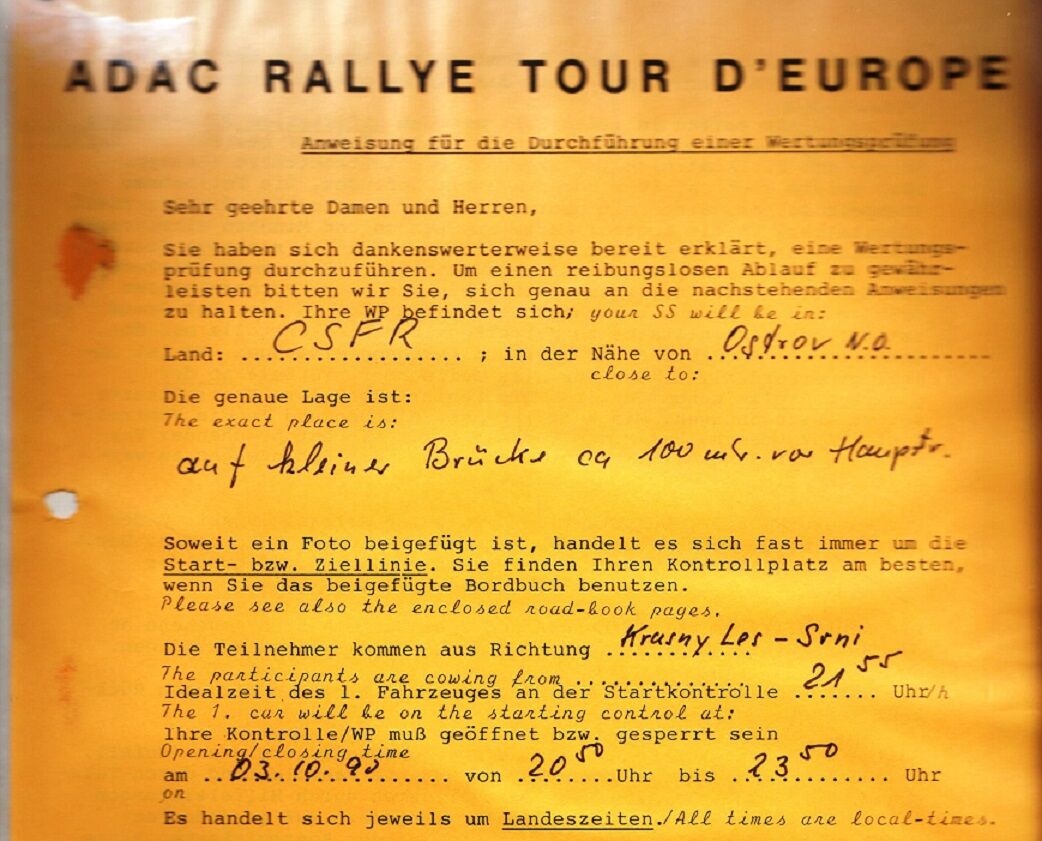 ADAC RALLYE TOUR D'EUROPE
Anweisung für die Durchführung einer Wertungsprüfung
Sehr geehrte Damen und Herren,
Sie haben sich dankenswerterweise bereit erklärt, eine Wertungs-
prüfung durchzuführen. Um einen reibungslosen Ablauf zu gewähr-
leisten bitten wir Sie, sich genau an die nachstehenden Anweisungen
zu halten. Ihre WP befindet sich; your SS will be in:
Land: CSFR ; in der Nähe von Ostrov N.O.
close to:
Die genaue Lage ist:
The exact place is:
auf kleiner Brücke ca 100 mtr. vor Hauptstr.
Soweit ein Foto beigefügt ist, handelt es sich fast immer um die
Start- bzw. Ziellinie. Sie finden Ihren Kontrollplatz am besten,
wenn Sie das beigefügte Bordbuch benutzen.
Please see also the enclosed road-book pages.
Die Teilnehmer kommen aus Richtung Krasny Les - Srni
The participants are cowing from ...............
Idealzeit des 1. Fahrzeuges an der Startkontrolle 21 55 Uhr/h
The 1. car will be on the starting control at:
Ihre Kontrolle/WP muß geöffnet bzw. gesperrt sein
Opening/closing time
am 03.10.90 von 20 50 Uhr bis 23 50 Uhr
on
Es handelt sich jeweils um Landeszeiten./All times are local-times.